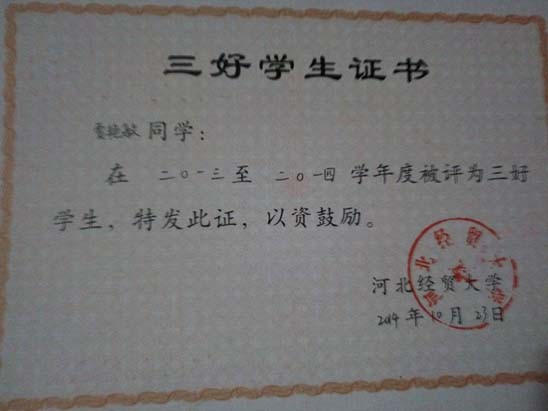 三好学生证书
艳敏同学：
在 二〇一三至 二〇一四 学年度被评为三好
学生，特发此证，以资鼓励。
河北经贸大学
河北经贸大学
2014年10月23日